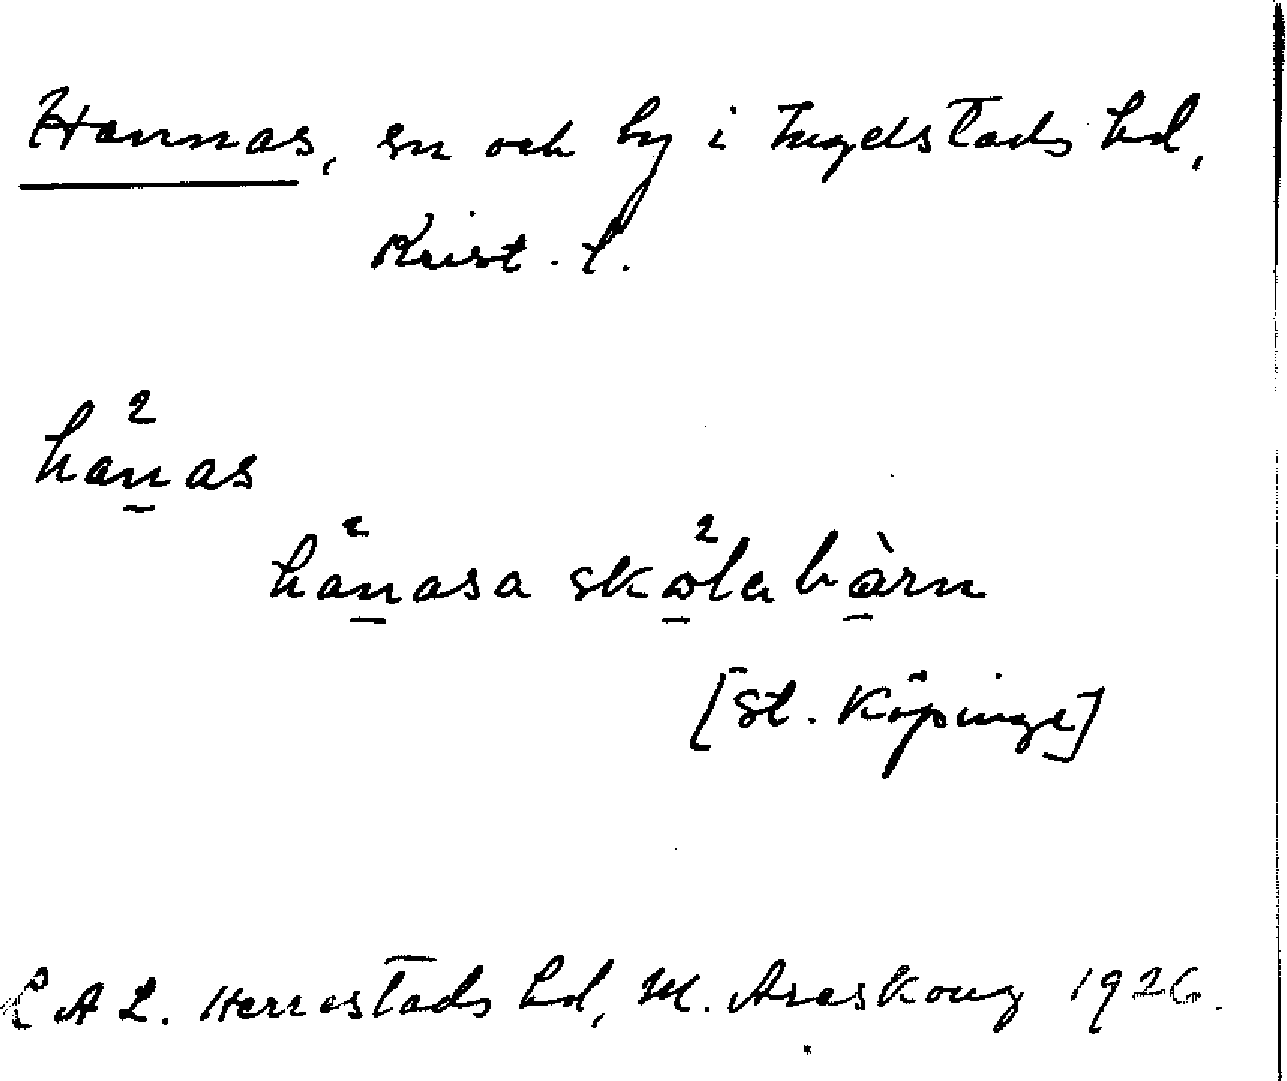 Hannas, sn och by i Ingelstads hd,
Krist. l.
ha²n̲as
ha²n̲asa sko̲²la bà̲rn
[St. Köpinge]
L A L. Herrestads hd, M. Areskoug 1926.